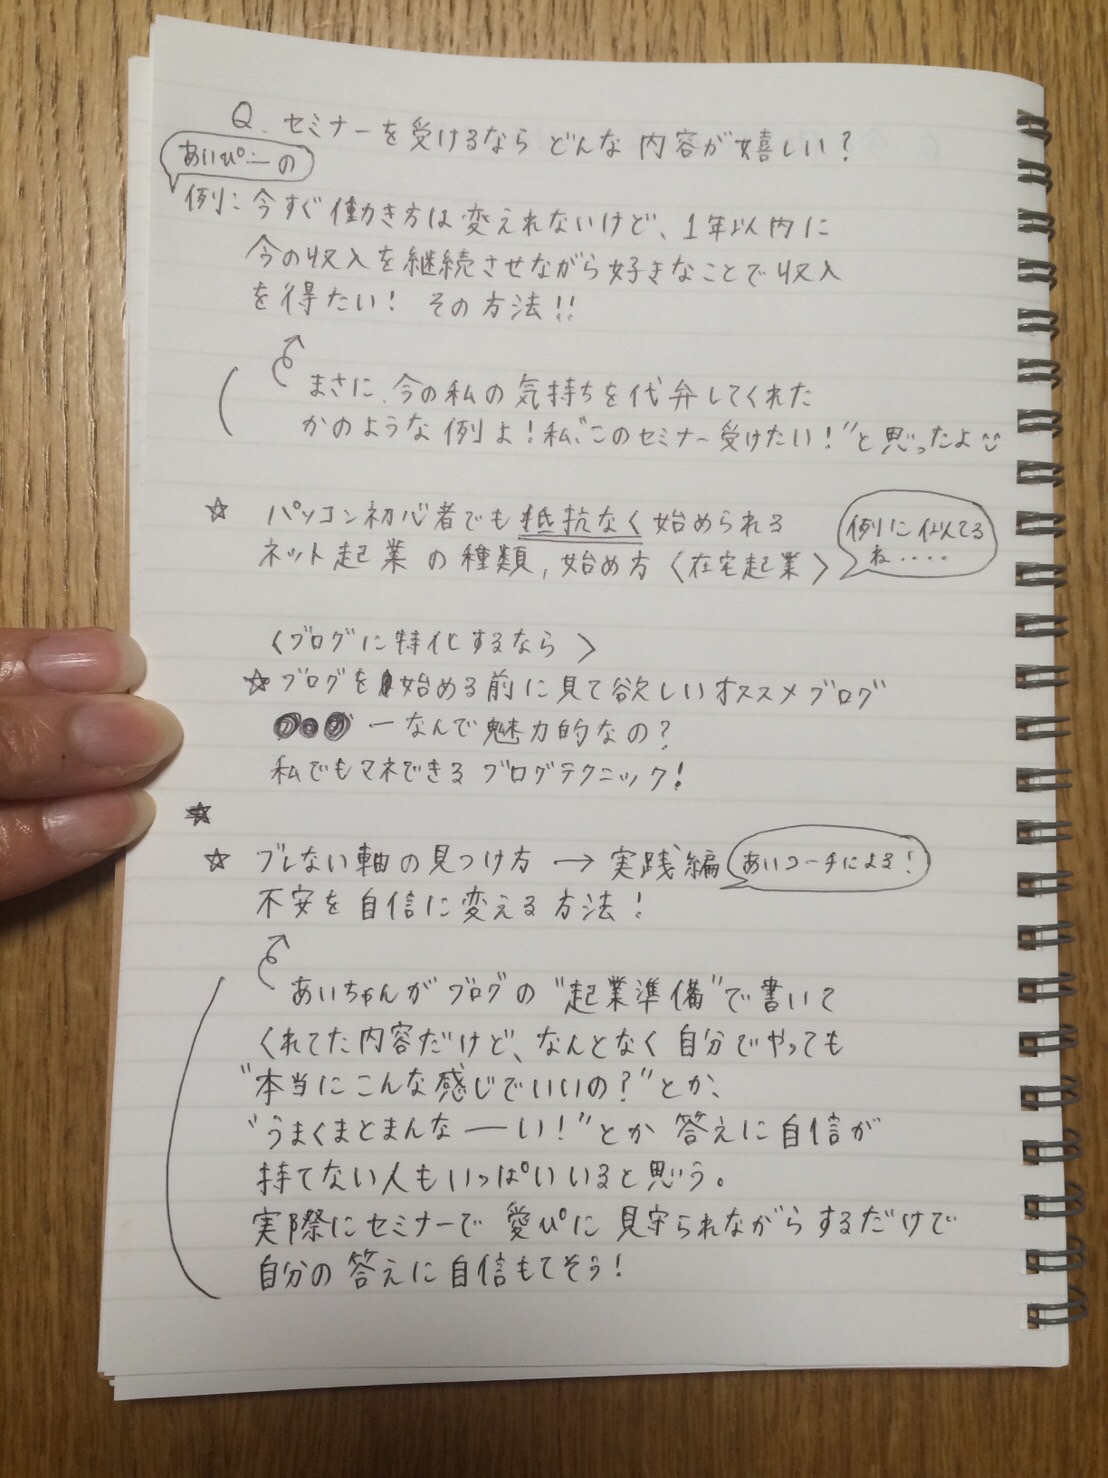 Q. セミナーを受けるなら どんな 内容が嬉しい?
あいぴーの
例:今すぐ働き方は変えれないけど、1年以内に
今の収入を継続させながら好きなことで収入
を得たい! その方法!!
まさに、今の私の気持ちを代弁してくれた
かのような例よ!私、“このセミナー受けたい!”と思ったよ
☆ パソコン初心者でも抵抗なく始められる
ネット起業の種類, 始め方〈在宅起業〉
例に似てる
ね....
〈ブログに特化するなら〉
☆ブログを始める前に見て欲しいオススメブログ
―なんで魅力的なの?
私でもマネできるブログテクニック!
☆
☆ ブレない軸の見つけ方 → 実践編
あいコーチによる!
不安を自信に変える方法!
あいちゃんがブログの“起業準備”で書いて
くれてた内容だけど、なんとなく自分でやっても
“本当にこんな感じでいいの?”とか、
“うまくまとまんなーい!”とか 答えに自信が
持てない人もいっぱいいると思う。
実際にセミナーで 愛ぴに見守られながらするだけで
自分の答えに自信もてそう!